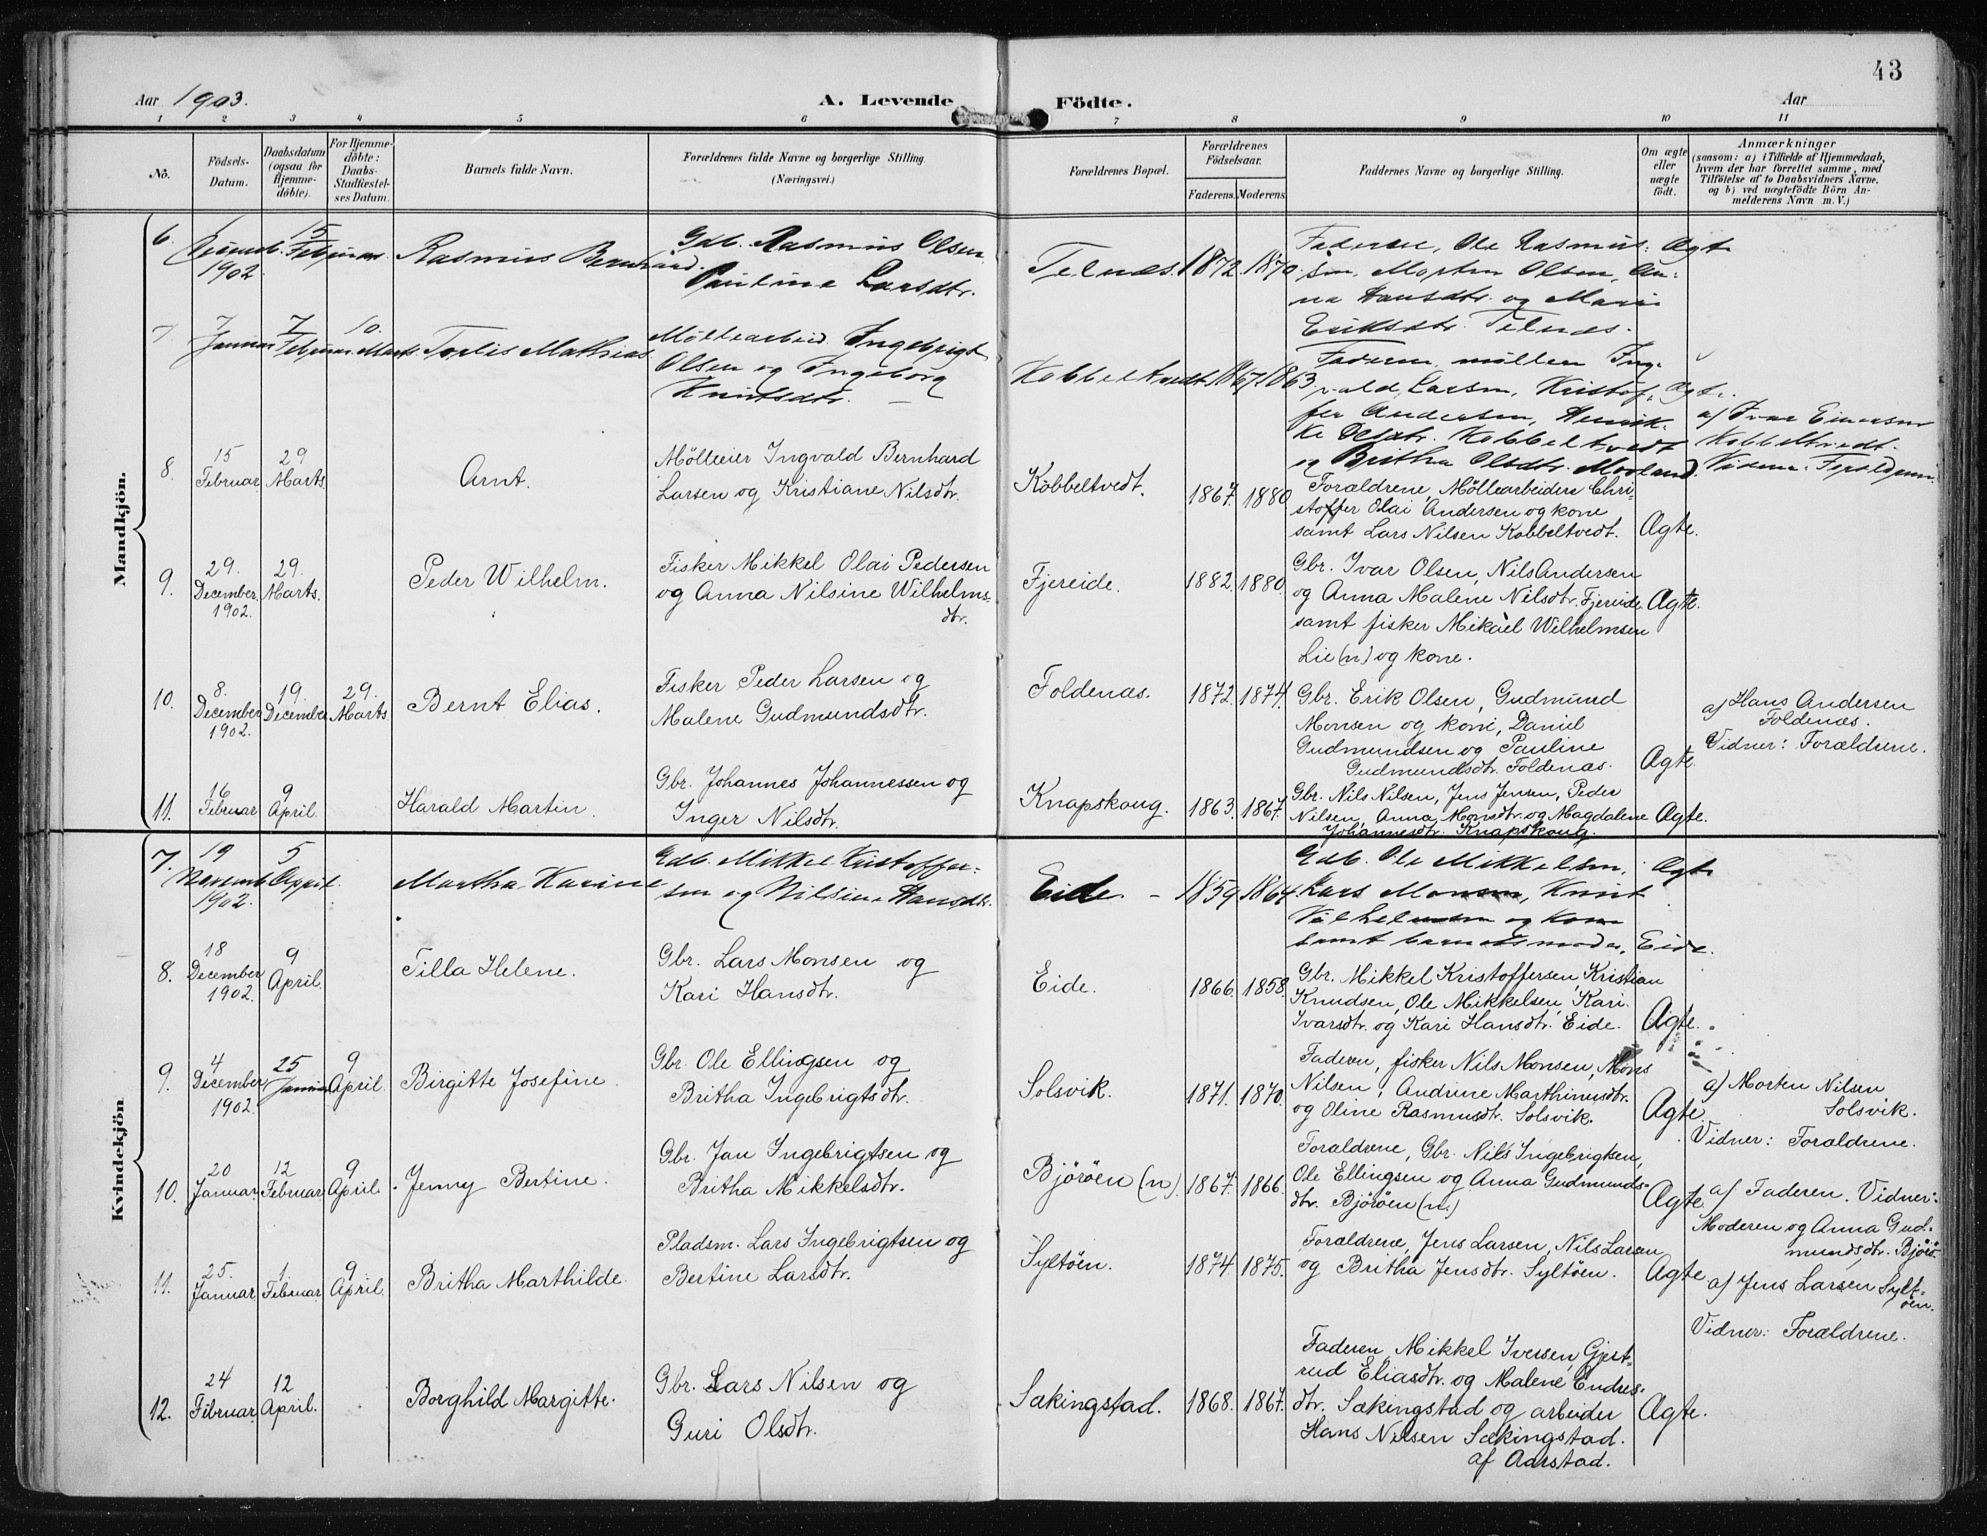 43
Aar 1903.
A. Levende Födte.
Aar
1 2 3 4 5 6 7 8 9 10 11
No.
Födsels-Datum.
Daabsdatum (ogsaa for Hjemmedöbte).
For Hjemmedöbte: Daabs-Stadfæstelses Datum.
Barnets fulde Navn.
Forældrenes fulde Navne og borgerlige Stilling. (Næringsvei.)
Forældrenes Bopæl.
Forældrenes Födselsaar.
Faderens. Moderens.
Faddernes Navne og borgerlige Stilling.
Om ægte eller uægte födt.
Anmærkninger
(saasom: a) i Tilfælde af Hjemmedaab, hvem der har forrettet samme, med Tilföielse af to Daabsvidners Navne, og b) ved uægtefödte Börn Anmelderens Navn m. V.)
Mandkjön.
6.
1902
15 Februar
Rasmus Bernhard.
Gdb. Rasmus Olsen
Pauline Larsdtr.
Telnæs.
1872. 1870
Faderen, Ole Rasmus-
sen, Morten Olsen, An-
na Hansdtr. og Mari
Eriksdtr. Telnæs.
Agte
7.
7 Januar
7 Februar
10. Marts
Torlis Mathias
Möllearbeid. Ingebrigt
Olsen og Ingeborg
Knutsdtr.
Kobbeltvedt.
1867. 1863.
Faderen, möller Ing-
vald Larsen, Kristof-
fer Andersen, Henrik-
ke Olsdtr. Kobbeltvedt
og Britha Olsdtr. Movland.
Agte.
a) Ivar Einarsen
Kobbeltvedt.
Vidner: Forældrene.
8.
15 Februar.
29 Marts
Arnt.
Mölleeier Ingvald Bernhard
Larsen og Kristiane Nilsdtr.
Kobbeltvedt.
1867. 1880
Forældrene, Möllearbeider Chri-
stoffer Olai Andersen og kone
samt Lars Nilsen Kobbeltvedt.
Agte.
9.
29. December. 1902.
29. Marts.
Peder Wilhelm.
Fisker Mikkel Olai Pedersen
og Anna Nilsine Wilhelms-
dtr.
Fjereide.
1882. 1880.
Gbr. Ivar Olsen, Nils Andersen
og Anna Malene Nilsdtr. Fjereide
samt fisker Mikael Wilhelmsen
Lie (n) og kone.
Agte.
10.
8. December 1902.
19. December
29. Marts
Bernt Elias.
Fisker Peder Larsen og
Malene Gudmundsdtr.
Foldenæs.
1872. 1874.
Gbr. Erik Olsen, Gudmund
Monsen og kone, Daniel
Gudmundsen og Pauline
Gudmundsdtr. Foldenæs.
Agte.
a) Hans Andersen
Foldenæs.
Vidner: Forældrene.
11.
16 Februar
9 April.
Harald Martin.
Gbr. Johannes Johannessen og
Inger Nilsdtr.
Knapskoug.
1863. 1867.
Gbr. Nils Nilsen, Jens Jensen, Peder
Nilsen, Anna Monsdtr. og Magdalene
Johannesdtr. Knapskoug.
Agte.
Kvindekjön.
7.
19 Novemb. 1902
5 April.
Martha Karine
Gdb. Mikkel Kristoffer-
sen og Nilsine Hansdtr.
Eide.
1859 1864.
Gdb. Ole Mikkelsen,
Lars Monsen, Knut
Vilhelmsen og Kone
samt barnets moder, Eide.
Agte
8.
18 December 1902.
9 April.
Tilla Helene.
Gbr. Lars Monsen og
Kari Hansdtr.
Eide.
1866. 1858.
Gbr. Mikkel Kristoffersen, Kristian
Knudsen, Ole Mikkelsen, Kari
Ivarsdtr. og Kari Hansdtr. Eide.
Agte.
9.
4 December 1902.
25 Januar
9 April.
Birgitte Josefine.
Gbr. Ole Ellingsen og
Britha Ingebrigtsdtr.
Solsvik.
1871. 1870.
Faderen, fisker Nils Monsen, Mons
Nilsen, Andrine Marthinusdtr.
og Oline Rasmusdtr. Solsvik.
Agte.
a) Morten Nilsen
Solsvik.
Vidner: Forældrene.
10.
20 Januar.
12 Februar.
9 April
Jenny Bertine.
Gbr. Jan Ingebrigtsen og
Britha Mikkelsdtr.
Björöen (n)
1867. 1866.
Forældrene, Gbr. Nils Ingebrigtsen,
Ole Ellingsen og Anna Gudmunds-
dtr. Björöen (n.)
Agte.
a) Faderen. Vidner:
Moderen og Anna Gud-
mundsdtr. Björö-
11.
25. Januar.
1. Februar.
9 April.
Britha Marthilde.
Pladsm. Lars Ingebrigtsen og
Bertine Larsdtr.
Syltöen.
1874. 1875.
Forældrene, Jens Larsen, Nils Larsen
og Britha Jensdtr. Syltöen.
Agte.
a) Jens Larsen Sylt-
öen.
Vidner: Forældrene.
12.
24 Februar
12 April.
Borghild Margitte.
Gbr. Lars Nilsen og
Guri Olsdtr.
Sækingstad.
1868. 1867.
Faderen, Mikkel Iversen, Gjert-
rud Eliasdtr. og Malene Endres-
dtr. Sækingstad og arbeider
Hans Nilsen Sækingstad.
af Aarstad.
Agte.